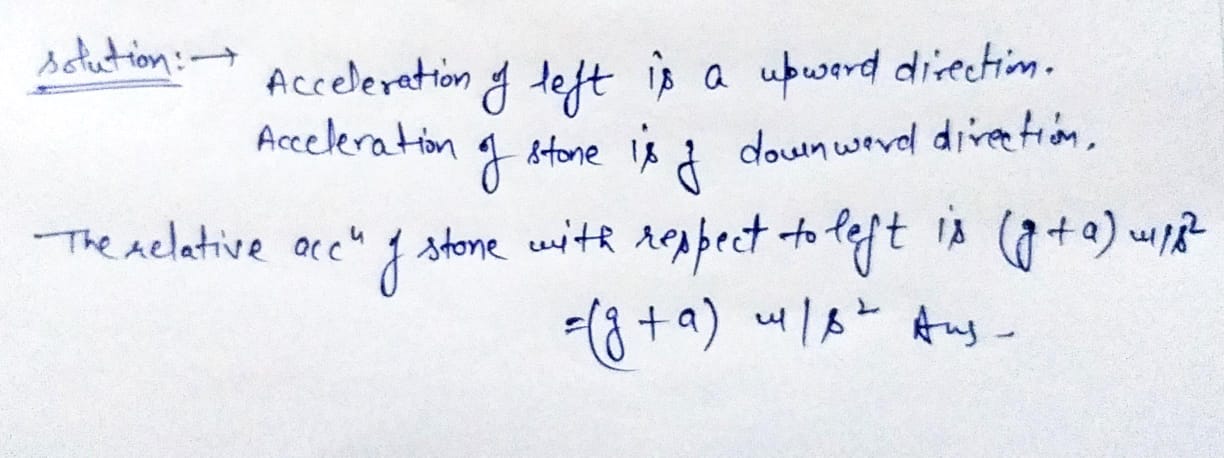 solution:→
Acceleration of left is a upward direction.
Acceleration of stone is g downward direction.
The relative accⁿ of stone with respect to left is (g+a) m/s²
=(g+a) m/s² Ans -